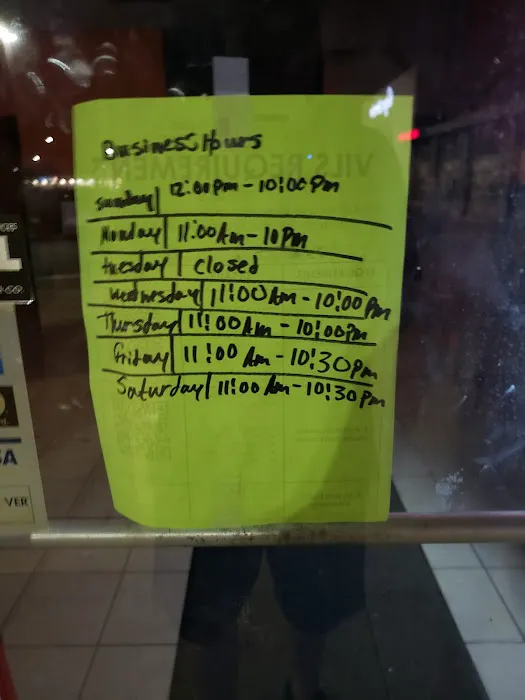 Business Hours
Sunday 12:00pm - 10:00pm
Monday 11:00Am - 10pm
tuesday closed
Wednesday 11:00Am - 10:00pm
Thursday 11:00Am - 10:00pm
friday 11:00 Am - 10:30pm
Saturday 11:00 Am - 10:30pm
VER